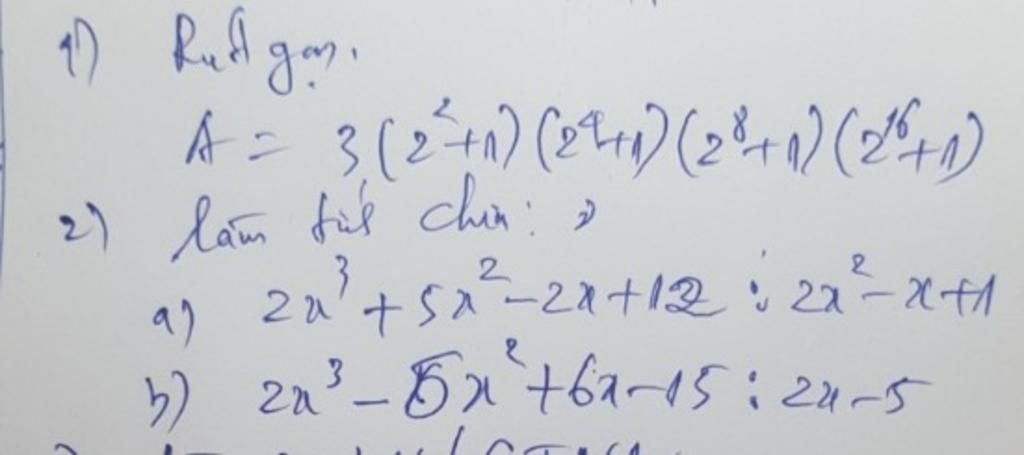 1) Rút gọn.
A = 3(2²+1)(2⁴+1)(2⁸+1)(2¹⁶+1)
2) Làm tính chia:
a) 2x³ + 5x² - 2x + 12 : 2x² - x + 1
b) 2x³ - 5x² + 6x - 15 : 2x - 5